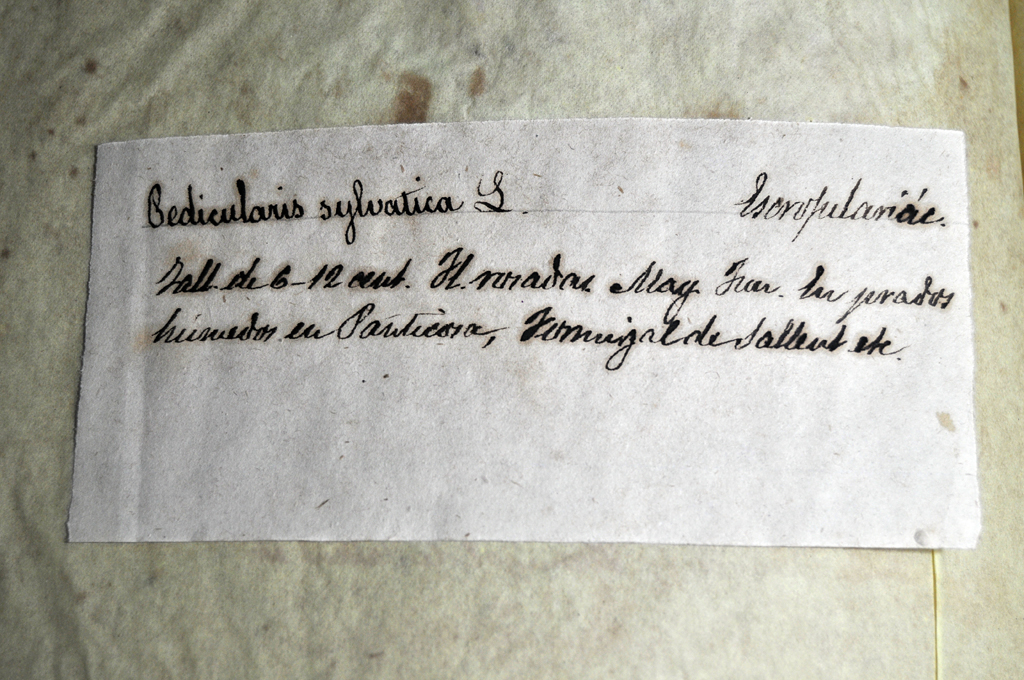 Pedicularis sylvatica L. Escrofulariác.
Tall. de 6-12 cent. Fl. rosadas. May. Jun. En prados
húmedos en Panticosa, Formigal de Sallent etc.